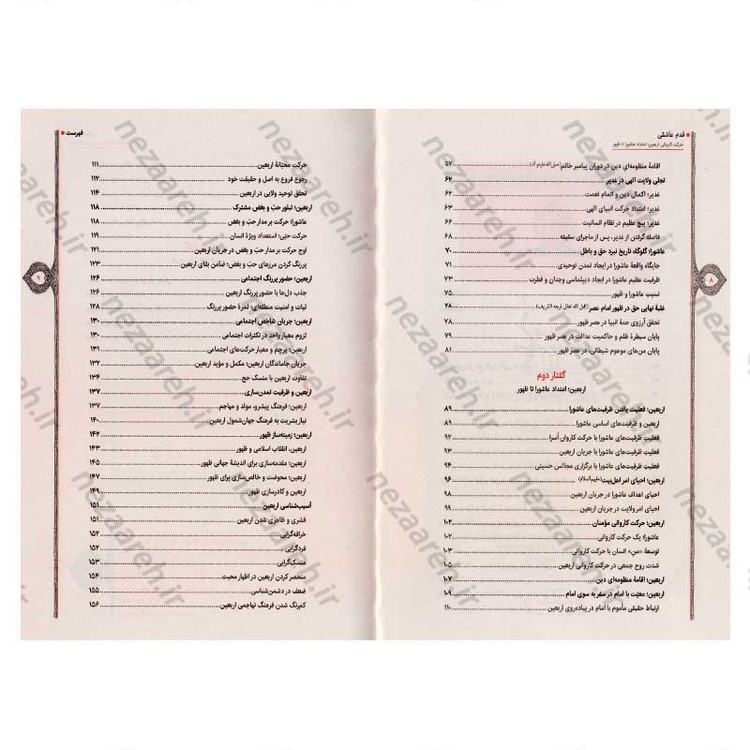 قدم عاشقی
حرکت کاروانی اربعین؛ امتداد عاشورا تا ظهور
اقامهٔ منظومه‌ای دین در دوران پیامبر خاتم ۵۷
تجلی ولایت الهی در غدیر ۶۲
غدیر؛ اکمال دین و اتمام نعمت ۶۲
غدیر؛ امتداد حرکت انبیای الهی ۶۳
غدیر؛ پیچ عظیم در نظام انسانیت ۶۶
فاصله گرفتن از غدیر، پس از ماجرای سقیفه ۶۸
عاشورا؛ گلوگاه تاریخ نبرد حق و باطل ۷۰
جایگاه واقعهٔ عاشورا در ایجاد تمدن توحیدی ۷۱
ظرفیت عظیم عاشورا در ایجاد دیپلماسی وجدان و فطرت ۷۳
نسبت عاشورا و ظهور ۷۵
غلبهٔ نهایی حق در ظهور امام عصر (عجل الله تعالی فرجه الشریف) ۷۸
تحقق آرزوی همهٔ انبیا در عصر ظهور ۷۸
پایان سیطرهٔ ظلم و حاکمیت عدالت در عصر ظهور ۷۹
پایان من‌های موهوم شیطانی، در عصر ظهور ۸۱
گفتار دوم
اربعین؛ امتداد عاشورا تا ظهور
اربعین؛ فعلیت یافتن ظرفیت‌های عاشورا ۸۹
اربعین و ظرفیت‌های اساسی عاشورا ۸۹
فعلیتِ ظرفیت‌های عاشورا با حرکت کاروان اُسرا ۹۲
فعلیتِ ظرفیت‌های عاشورا با جریان اربعین ۹۳
فعلیتِ ظرفیت‌های عاشورا با برگزاری مجالس حسینی ۹۴
اربعین؛ احیای امر اهل‌بیت (علیهم‌السلام) ۹۶
احیای اهداف عاشورا در جریان اربعین ۹۸
احیای امر ولایت در جریان اربعین ۹۹
اربعین؛ حرکت کاروانی مؤمنان ۱۰۲
عاشورا؛ یک حرکت کاروانی ۱۰۲
توسعهٔ «من» انسان با حرکت کاروانی ۱۰۳
شدت روح جمعی در حرکت کاروانی اربعین ۱۰۵
اربعین؛ اقامهٔ منظومه‌ای دین ۱۰۷
اربعین؛ معیّت با امام در سفر به سوی امام ۱۰۹
ارتباط حقیقی مأموم با امام در پیاده‌روی اربعین ۱۱۰
۸
فهرست
حرکت محبّانهٔ اربعین ۱۱۱
رجوع فروع به اصل و حقیقت خود ۱۱۲
تحقق توحید ولایی در اربعین ۱۱۴
اربعین؛ تبلور حبّ و بغض مشترک ۱۱۸
عاشورا؛ حرکت بر مدار حبّ و بغض ۱۱۸
حرکت حبّی؛ استعداد ویژهٔ انسان ۱۱۹
اوج حرکت بر مدار حبّ و بغض در جریان اربعین ۱۲۱
پررنگ کردن مرزهای حبّ و بغض؛ ضامن بقای اربعین ۱۲۳
اربعین؛ حضور پررنگ اجتماعی ۱۲۶
جذب دل‌ها با حضور پررنگ اربعین ۱۲۶
ثبات و امنیت منطقه‌ای؛ ثمرهٔ حضور پررنگ ۱۲۸
اربعین؛ جریان شاخص اجتماعی ۱۳۰
لزوم معیار واحد در تکثرات اجتماعی ۱۳۰
اربعین؛ پرچم و معیار حرکت‌های اجتماعی ۱۳۱
جریان جاماندگان اربعین؛ مکمل و مؤید اربعین ۱۳۲
تفاوت اربعین با مَنسک حج ۱۳۴
اربعین و ظرفیت تمدن‌سازی ۱۳۷
اربعین؛ فرهنگ پیشرو، مولد و مهاجم ۱۳۷
نیاز بشریت به فرهنگ جهان‌شمول اربعین ۱۴۰
اربعین؛ زمینه‌ساز ظهور ۱۴۲
اربعین، انقلاب اسلامی و ظهور ۱۴۳
اربعین؛ مقدمه‌سازی برای اندیشهٔ جهانی ظهور ۱۴۵
اربعین؛ محوضت و خالص‌سازی برای ظهور ۱۴۷
اربعین و کادرسازی ظهور ۱۴۹
آسیب‌شناسی اربعین ۱۵۱
قشری و ظاهری شدن اربعین ۱۵۱
خرافه‌گرایی ۱۵۲
فردگرایی ۱۵۲
مَنسک‌گرایی ۱۵۳
منحصر کردن اربعین در اظهار محبت ۱۵۴
ضعف در دشمن‌شناسی ۱۵۵
کم‌رنگ شدن فرهنگ تهاجمی اربعین ۱۵۶
۹
nezaareh.ir